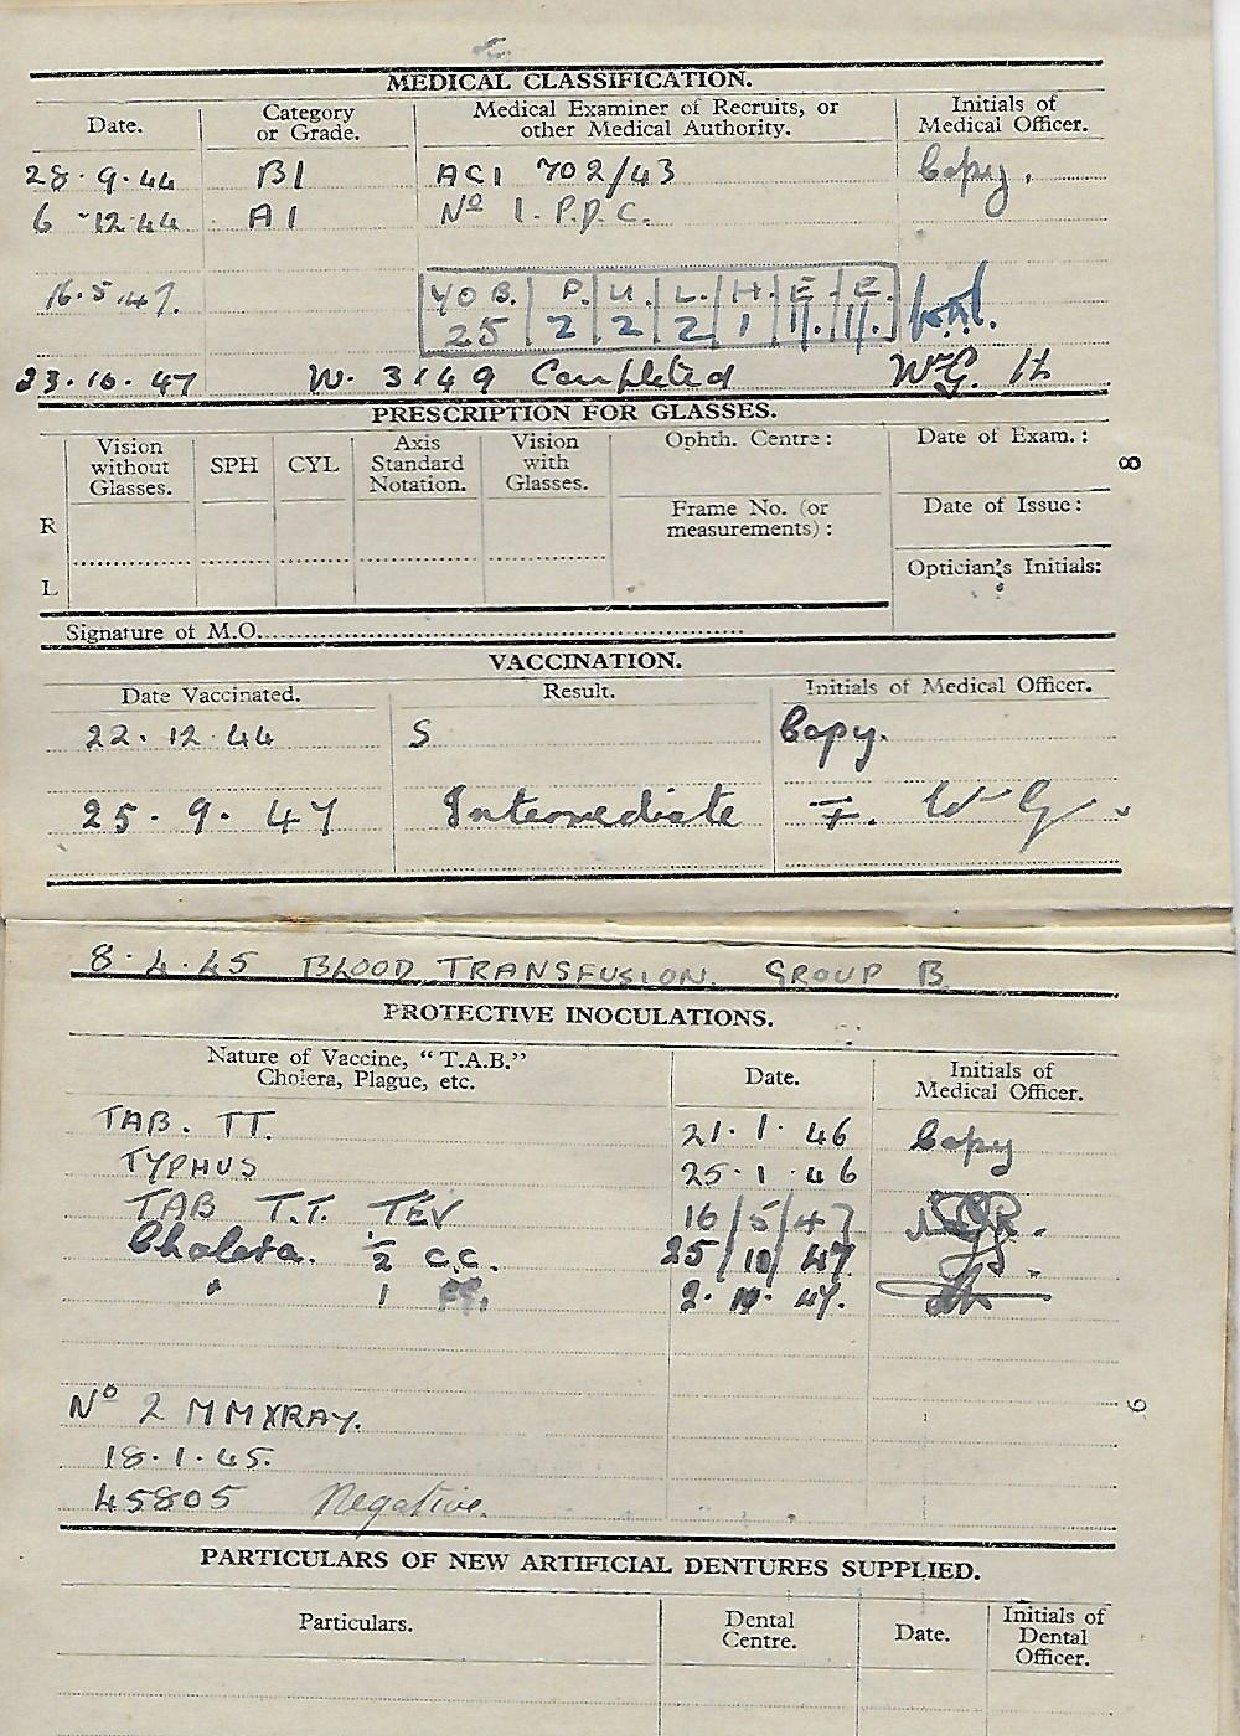 MEDICAL CLASSIFICATION.
Date. Category or Grade. Medical Examiner of Recruits, or other Medical Authority. Initials of Medical Officer.
28.9.44 B1 ACI 702/43 Copy.
6-12.44 A1 No 1. P.D.C.
16.5.47. YOB. P. U. L. H. E. E.
25 2 2 2 1 1. 1.
23.10.47 W. 3149 Completed
PRESCRIPTION FOR GLASSES.
Vision without Glasses. SPH CYL Axis Standard Notation. Vision with Glasses. Ophth. Centre: Date of Exam.:
8
R Frame No. (or measurements): Date of Issue:
L Optician's Initials:
Signature of M.O.
VACCINATION.
Date Vaccinated. Result. Initials of Medical Officer.
22.12.44 S Copy.
25.9.47 Intermediate F. W-G.
8.4.45 BLOOD TRANSFUSION. GROUP B
PROTECTIVE INOCULATIONS.
Nature of Vaccine, "T.A.B." Cholera, Plague, etc. Date. Initials of Medical Officer.
TAB. TT. 21.1.46 Copy
TYPHUS 25.1.46
TAB T.T. TEV 16/5/47
Cholera. ½ c.c. 25/10/47
" 1 cc. 2. 47.
No 2 MMXRAY.
9
18.1.45.
45805 Negative.
PARTICULARS OF NEW ARTIFICIAL DENTURES SUPPLIED.
Particulars. Dental Centre. Date. Initials of Dental Officer.